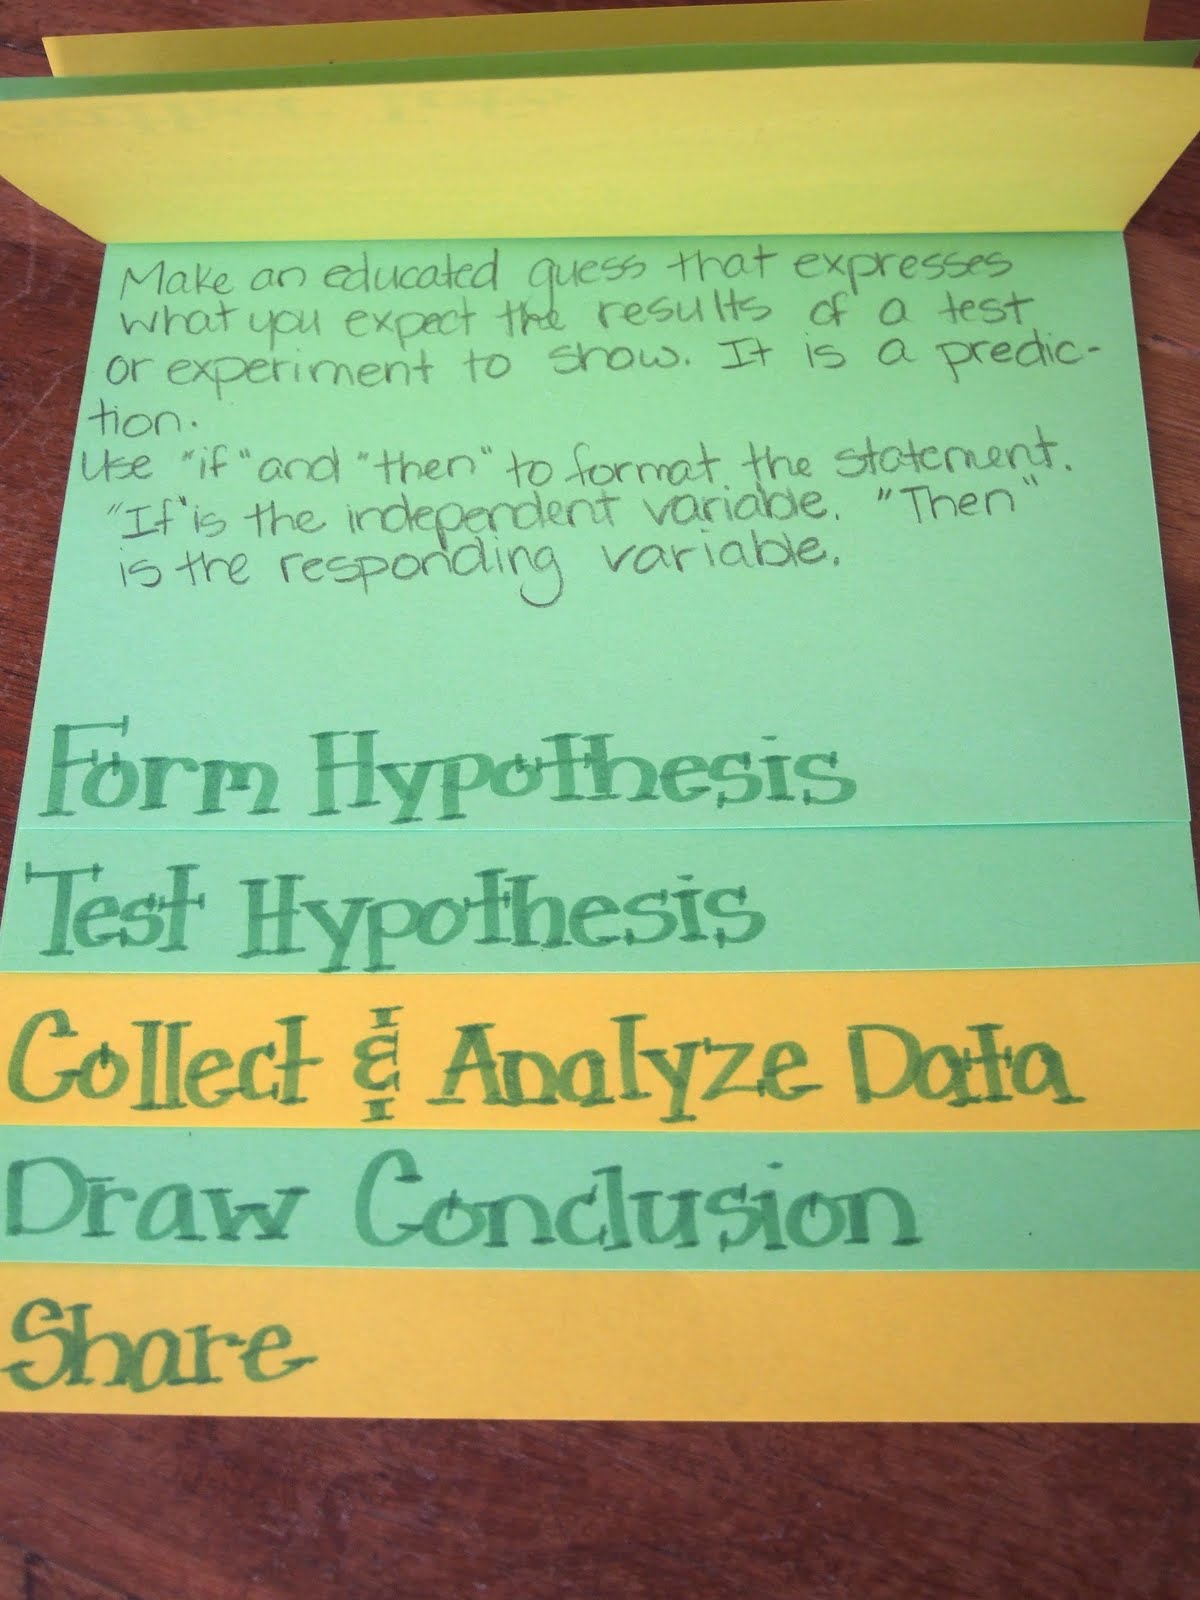 Make an educated guess that expresses
what you expect the results of a test
or experiment to show. It is a predic-
tion.
Use "if" and "then" to format the statement.
"If" is the independent variable. "Then"
is the responding variable.
Form Hypothesis
Test Hypothesis
Collect & Analyze Data
Draw Conclusion
Share